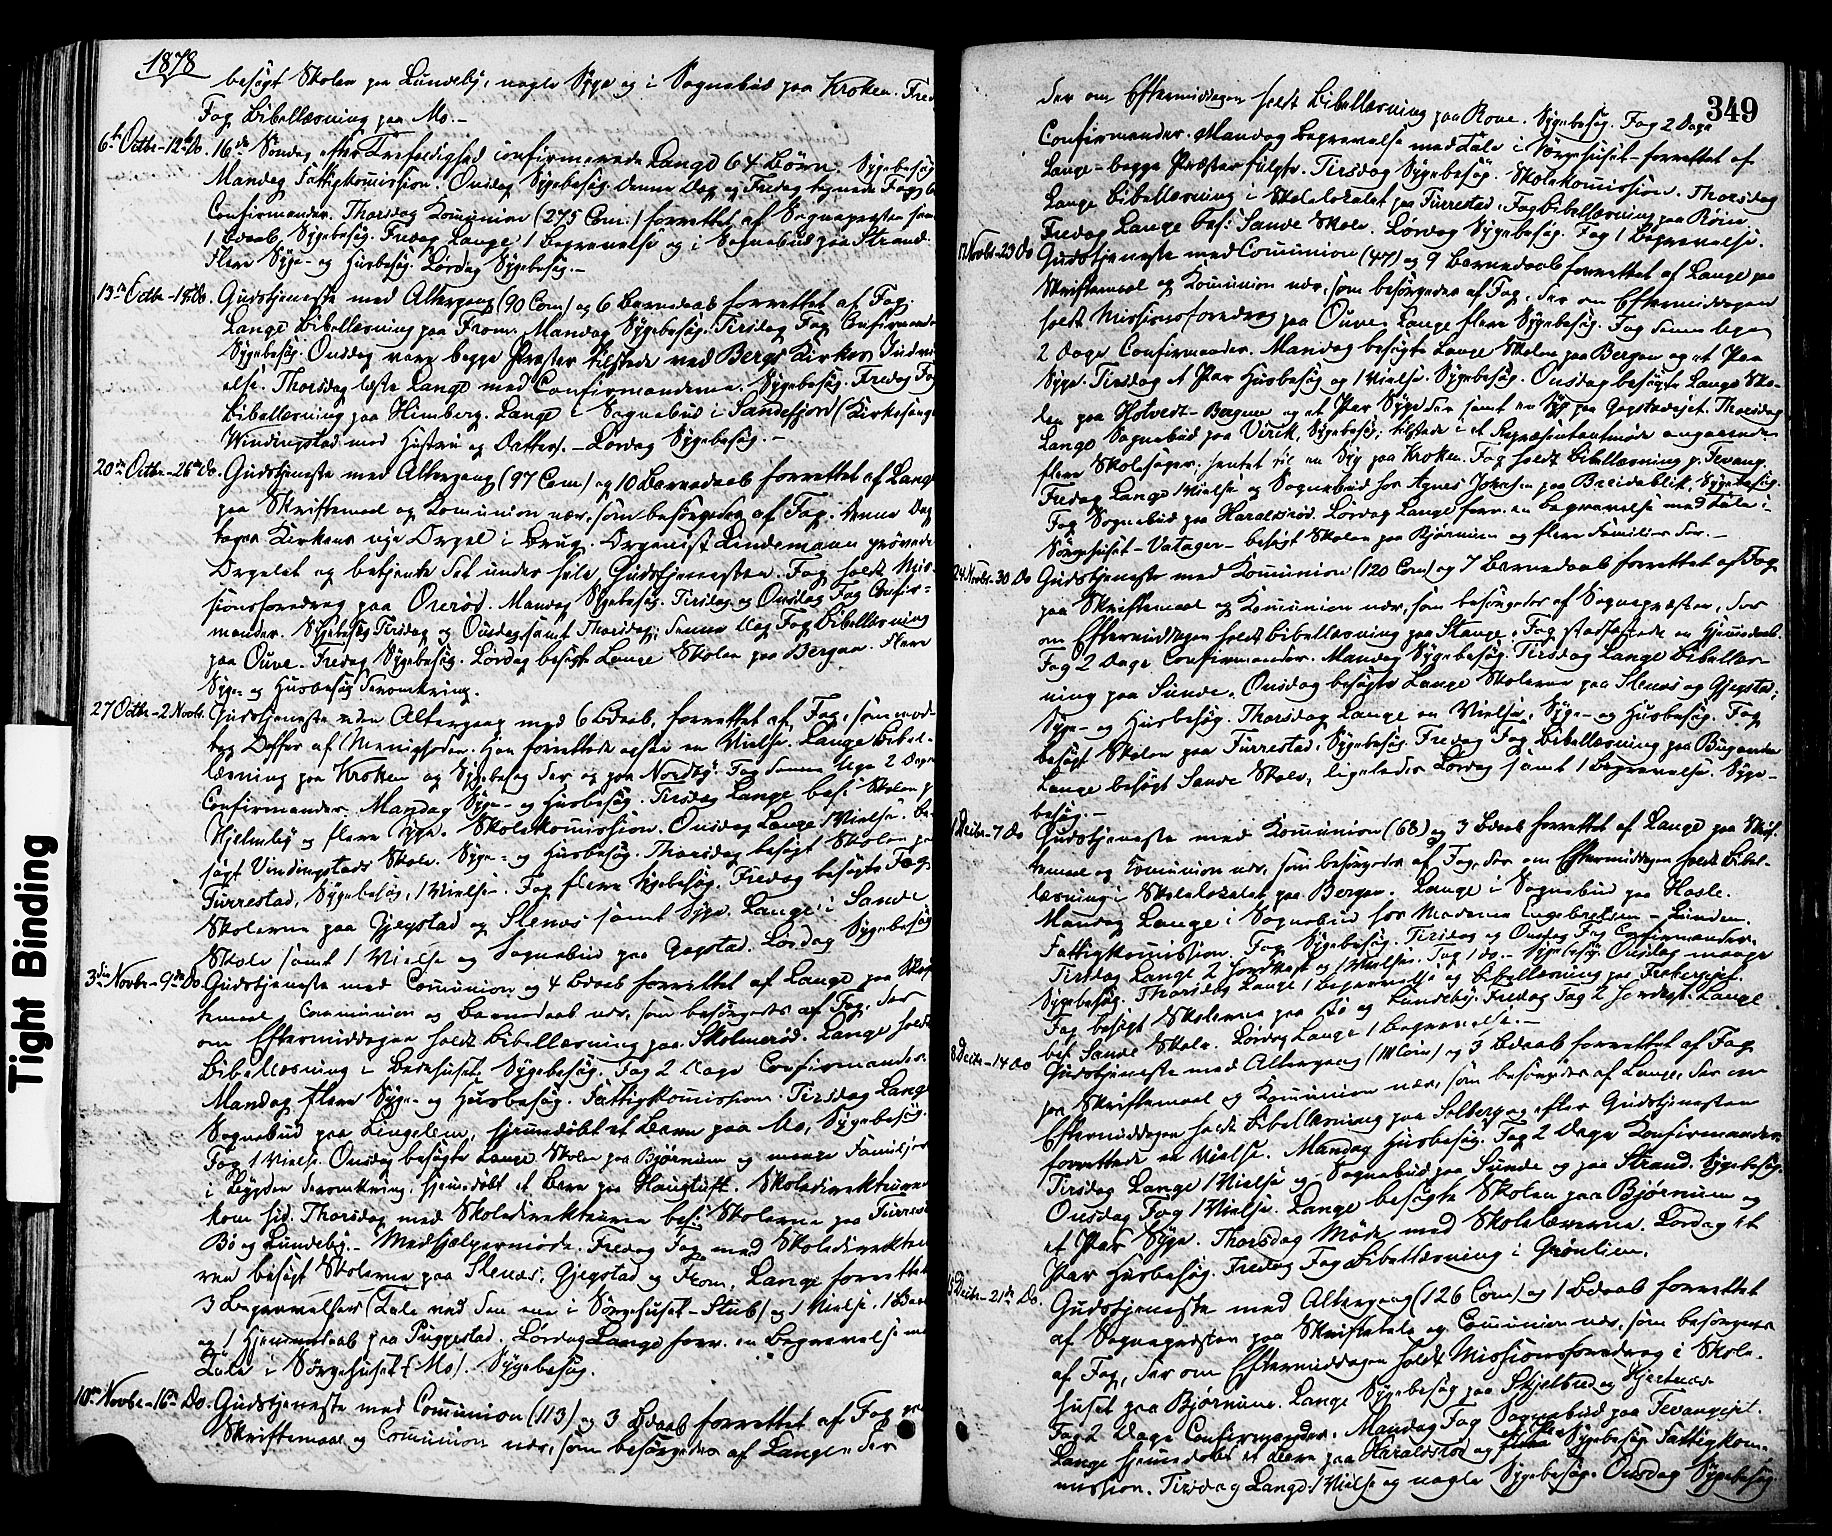 1878
besögt Skolen paa Lundeby, nogle Syge og i Sognebud paa Kroken. Fred
Fog Bibellæsning paa Mo.-
6te Octbr-12te Do. 16de Söndag efter Trefoldighed confirmerede Lange 64 Börn. Sygebesög.
Mandag Fattigkommission. Onsdag Sygebesög. Denne Dag og Fredag tegnede Fog
Confirmander. Thorsdag Komunion (275 Com.) forrettet af Sognepresten samt
1 Bdaab, Sygebesög. Fredag Lange 1 Begravelse og i Sognebud paa Strand.
Flere Syge- og Husbesög. Lördag Sygebesög.-
13de Octbr-19de Do. Gudstjeneste med Altergang (90 Com) og 6 Barnedaab forrettet af Fog.
Lange Bibellæsning paa From. Mandag Sygebesög. Tirsdag Fog Confirmander
Sygebesög. Onsdag vare begge Præster tilstede ved Bergs Kirkes Indvi
else. Thorsdag læste Lange med Confirmanderne. Sygebesög. Fredag Fog
Bibellæsning paa Himberg. Lange i Sognebud i Sandefjord (Kirkesanger
Windingstad med Hustru og Datter). -Lördag Sygebesög.-
20de Octbr-26de Do. Gudstjeneste med Altergang (97 Com) og 10 Barnedaab forrettet af Lange
paa Skriftemaal og Komunion nær, som besörgedes af Fog. Denne Dag
toges Kirkens nye Orgel i Brug. Organist Lindemann prövede
Orgelet og betjente det under hele Gudstjenesten. Fog holdt Mis-
sionsforedrag paa Ormeröd. Mandag Sygebesög. Tirsdag og Onsdag Fog Confir-
mander. Sygebesög Tirsdag og Onsdag samt Thorsdag; denne Dag Fog Bibellæsning
paa Ouve. Fredag Sygebesög. Lördag besögt Lange Skolen paa Bergan. Flere
Syge- og Husbesög deromkring.
27 Octbr-2 Novbr. Gudstjeneste uden Altergang med 6 Bdaab, forrettet af Fog, som mod-
tog Offer af Menigheden. Han forrettede ogsaa en Vielse. Lange Bibel-
læsning paa Kroken og Sygebesög der og paa Nordby. Fog denne Uge 2 Dage
Confirmander. Mandag Syge- og Husbesög. Tirsdag Lange bes: Skolen p
Hjelmby og flere Syge. Skolekommission. Onsdag Lange 1 Vielse. Be-
sögt Vindingstads Skole. Syge- og Husbesög. Thorsdag besögt Skolen paa
Furrestad, Sygebesög, 1 Vielse. Fog flere Sygebesög. Fredag besögte Fog
Skolerne paa Gjegstad og Slenæs samt Syge. Lange i Sande
Skole samt 1 Vielse og Sognebud paa Gogstad. Lördag Sygebesög
3die Novbr-9de Do. Gudstjeneste med Communion og 4 Bdaab forrettet af Lange paa Skrif
temaal, Communion og Barnedaab nær, som besörgedes af Fog, der
om Eftermiddagen holdt Bibellæsning paa Skolmeröd. Lange holdt
Bibellæsning i Bedehuset. Sygebesög. Fog 2 Dage Confirmander.
Mandag flere Syge- og Husbesög. Fattigkommission. Tirsdag Lange
Sognebud paa Lingelem, hjemmedöbt et Barn paa Mo, Sygebesög.
Fog 1 Vielse. Onsdag besögte Lange Skolen paa Bjørnum og mange Familjer
i Bygden deromkring, hjemmedöbt et Barn paa Haugtuft. Skoledirekteuren
kom hid. Thorsdag med Skoledirekteuren bes: Skolerne paa Furrestad
Bö og Lundeby.- Medhjælpermöde. Fredag Fog med Skoledirekteu
ren besögt Skolerne paa Slenæs, Gjegstad og From. Lange forrettet
3 Begravelser (Tale ved den ene i Sörgehuset-Stub) og 1 Vielse. 1 Barn
og 1 Hjemmedaab paa Puggestad. Lördag Lange forr. en Begravelse med
Tale i Sörgehuset (Mo). Sygebesög.
10de Novbr-16de Do. Gudstjeneste med Communion (113) og 3 Bdaab forrettet af Fog paa
Skriftemaal og Communion nær, som besörgedes af Lange. Der
349
der om Eftermiddagen holdt Bibellæsning paa Rove. Sygebesög. Fog 2 Dage
Confirmander. Mandag Begravelse med Tale i Sörgehuset-forrettet af
Lange-begge Præster fulgte. Tirsdag Sygebesög. Skolekommission. Thorsdag
Lange Bibellæsning i Skolelokalet paa Furrestad. Fog Bibellæsning paa Röin
Fredag Lange bes: Sande Skole. Lördag Sygebesög. Fog 1 Begravelse.
17 Novbr-23 Do Gudstjeneste med Communion (47) og 9 Barnedaab forrettet af Lange paa
Skriftemaal og Komunion nær, som besörgedes af Fog, der om Eftermiddagen
holdt Missionsforedrag paa Ouve. Lange flere Sygebesög. Fog denne Uge
2 Dage Confirmander. Mandag besögte Lange Skolen paa Bergan og et Par
Syge. Tirsdag et Par Husbesög og 1 Vielse. Sygebesög. Onsdag besögte Lange Sko-
len paa Hotvedt-Bergan og et Par Syge der samt en Syg paa Gogstadejet. Thorsdag
Lange Sognebud paa Virik, Sygebesög; tilstede i et Repræsentantmöde angaaende
flere Skolesager; hentet til en Syg paa Kroken. Fog holdt Bibellæsning p. Fevang.
Fredag Lange 1 Vielse og Sognebud hos Agnes Johnsen paa Breidablik, Sygebesög.
Fog Sognebud paa Haraldsröd. Lördag Lange forr. en Begravelse med Tale i
Sörgehuset-Vatager- besögt Skolen paa Bjørnum og flere Familier der.-
24 Novbr-30 Do Gudstjeneste med Komunion (120 Com) og 7 Barnedaab forrettet af Fog
paa Skriftemaal og Komunion nær, som besörgedes af Sognepræsten, der
om Eftermiddagen holdt Bibellæsning paa Stange, Fog stadfæstede en Hjemmedaab.
Fog 2 Dage Confirmander. Mandag Sygebesög. Tirsdag Lange Bibellæs-
ning paa Sunde. Onsdag besögte Lange Skolerne paa Slenæs og Gjegstad;
Syge- og Husbesög. Thorsdag Lange en Vielse, Syge- og Husbesög. Fog
besögt Skolen paa Furrestad, Sygebesög. Fredag Fog Bibellæsning paa Bugaarden
Lange besögt Sande Skole, ligeledes Lördag samt 1 Begravelse. Syge-
besög.-
1 Decbr-7 Do Gudstjeneste med Komunion (68) og 3 Bdaab forrettet af Lange paa Skrif-
temaal og Communion nær, som besörgedes af Fog, der om Eftermiddagen holdt Bibel-
læsning i Skolelokalet paa Bergan. Lange i Sognebud paa Hasle.
Mandag Lange i Sognebud hos Madame Engebretsen-Lunden.
Fattigkommission. Fog Sygebesög. Tirsdag og Onsdag Fog Confirmander.
Tirsdag Lange 2 Jordkast og 1 Vielse. Fog 1 do.- Sygebesög Onsdag mange
Sygebesög. Thorsdag Lange 1 Begravelse og Bibellæsning paa
Fog besögt Skolerne paa Bö og Lundeby. Fredag Fog 2 Jordkast. Lange
bes. Sande Skole. Lördag Lange 1 Begravelse.-
8 Decbr-14 Do Gudstjeneste med Altergang (111 Com) og 3 Bdaab forrettet af Fog
paa Skriftemaal og Komunion nær, som besörgedes af Lange, der om
Eftermiddagen holdt Bibellæsning paa Solberg og efter Gudstjenesten
forrettede en Vielse. Mandag Husbesög. Fog 2 Dage Konfirmander.
Tirsdag Lange 1 Vielse og Sognebud paa Sunde og paa Strand. Sygebesög.
Onsdag Fog 1 Vielse. Lange besögte Skolen paa Bjørnum og
et Par Syge. Thorsdag Möde med Skolelærerne. Lördag et
Par Husbesög. Fredag Fog Bibellæsning i Grønlien.
15 Decbr-21de Do. Gudstjeneste med Altergang (126 Com) og 1 Bdaab forrettet
af Sognepræsten paa Skriftetale og Communion nær, som besörgedes
af Fog, der om Eftermiddagen holdt Missionsforedrag i Skole-
huset paa Bjørnum. Lange Sygebesög paa Skjelbred og Hjertnæs
Fog 2 Dage Confirmander. Mandag Fog Sognebud paa Fevangejet.
Lange hjemmedöbt et Barn paa Haraldsröd og flere Sygebesög. Fattigkom-
mission. Tirsdag Lange 1 Vielse og nogle Sygebesög. Onsdag Sygebesög.
Tight Binding